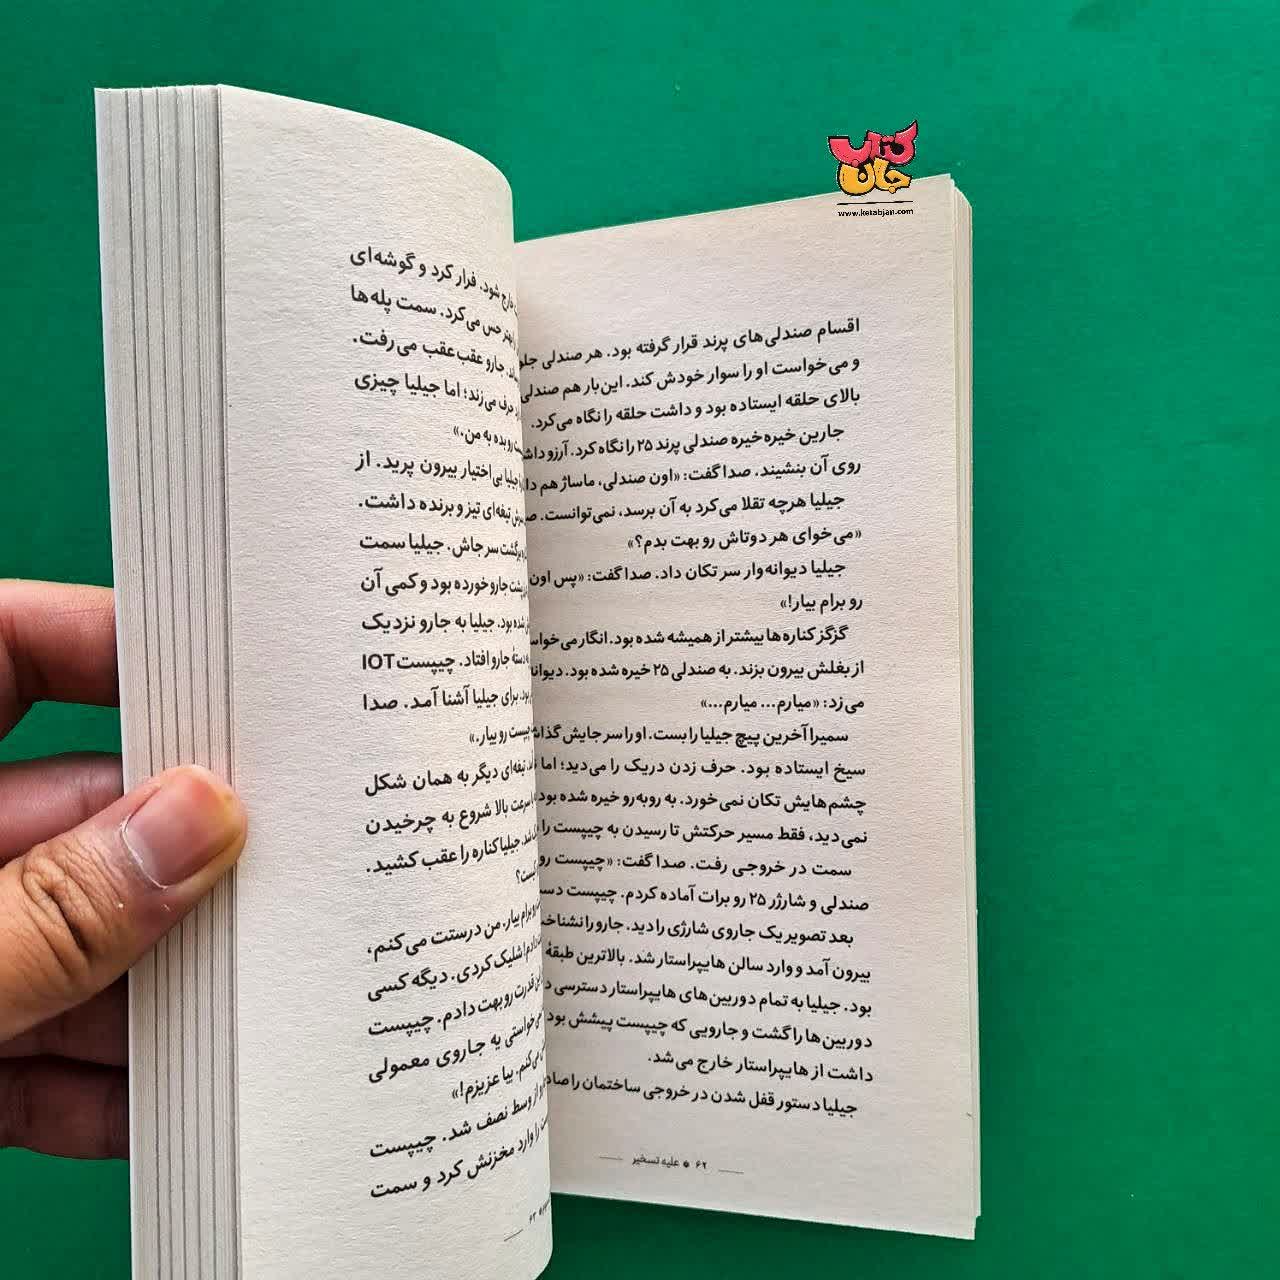 کتاب
جان
www.ketabjan.com
اقسام صندلی‌های پرند قرار گرفته بود. هر صندلی جلو
و می‌خواست او را سوار خودش کند. این‌بار هم صندلی
بالای حلقه ایستاده بود و داشت حلقه را نگاه می‌کرد.
جارین خیره‌خیره صندلی پرند ۲۵ را نگاه کرد. آرزو
روی آن بنشیند. صدا گفت: «اون صندلی، ماساژ هم
جیلیا هرچه تقلا می‌کرد به آن برسد، نمی‌توانست.
«می‌خوای هر دوتاش رو بهت بدم؟»
جیلیا دیوانه‌وار سر تکان داد. صدا گفت: «پس اون
رو برام بیار!»
گزگز کناره‌ها بیشتر از همیشه شده بود. انگار
از بغلش بیرون بزند. به صندلی ۲۵ خیره شده بود.
می‌زد: «میارم... میارم...»
سمیرا آخرین پیچ جیلیا را بست. او را سر جایش
سیخ ایستاده بود. حرف زدن دریک را می‌دید؛ اما
چشم‌هایش تکان نمی‌خورد. به روبه‌رو خیره شده بود
نمی‌دید، فقط مسیر حرکتش تا رسیدن به چیپست را
سمت در خروجی رفت. صدا گفت: «چیپست رو
صندلی و شارژر ۲۵ رو برات آماده کردم. چیپست
بعد تصویر یک جاروی شارژی را دید. جارو را
بیرون آمد و وارد سالن هایپراستار شد. بالاترین طبقهٔ
بود. جیلیا به تمام دوربین‌های هایپراستار دسترسی
دوربین ها را گشت و جارویی که چیپست پیشش بود
داشت از هایپراستار خارج می‌شد.
جیلیا دستور قفل شدن در خروجی ساختمان را
۶۲ * علیه تسخیر
خارج شود. فرار کرد و گوشه‌ای
حس می‌کرد. سمت پله‌ها
جارو عقب‌عقب می‌رفت.
حرف می‌زند؛ اما جیلیا چیزی
رو بده به من.»
جیلیا بی‌اختیار بیرون پرید. از
تیغه‌ای تیز و برنده داشت.
برگشت سر جاش. جیلیا سمت
پشت جارو خورده بود و کمی آن
شده بود. جیلیا به جارو نزدیک
دستهٔ جارو افتاد. چیپست IOT
برای جیلیا آشنا آمد. صدا
چیپست رو بیار.»
تیغه‌ای دیگر به همان شکل
سرعت بالا شروع به چرخیدن
شد. جیلیا کناره را عقب کشید.
رو برام بیار. من درستت می‌کنم،
شلیک کردی. دیگه کسی
قدرت رو بهت دادم. چیپست
می‌خواستی یه جاروی معمولی
می‌کنم. بیا عزیزم!»
از وسط نصف شد. چیپست
را وارد مخزنش کرد و سمت
۶۳